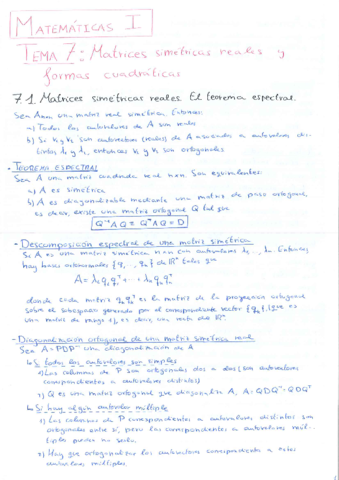 MATEMÁTICAS I
TEMA 7: Matrices simétricas reales y
formas cuadráticas
7.1. Matrices simétricas reales. El teorema espectral.
Sea Anxn una matriz real simétrica. Entonces:
a) Todos los autovalores de A son reales
b) Si v1 y v2 son autovectores (reales) de A asociados a autovalores dis-
tintos λ1 y λ2, entonces v1 y v2 son ortogonales
- TEOREMA ESPECTRAL
Sea A una matriz cuadrada real nxn. Son equivalentes:
a) A es simétrica
b) A es diagonalizable mediante una matriz de paso ortogonal,
es decir, existe una matriz ortogonal Q tal que
Q⁻¹AQ = QᵀAQ = D
- Descomposición espectral de una matriz simétrica
Si A es una matriz simétrica nxn con autovalores λ1, ..., λn. Entonces
hay bases ortonormales {q1, ..., qn} de ℝⁿ tales que
A = λ1q1q1ᵀ + ... + λnqnqnᵀ
donde cada matriz qkqkᵀ es la matriz de la proyección ortogonal
sobre el subespacio generado por el correspondiente vector {qk}, que es
una matriz de rango 1, es decir, una recta de ℝⁿ.
- Diagonalización ortogonal de una matriz simétrica real
Sea A = PDP⁻¹ una diagonalización de A
↳ Si todos los autovalores son simples
1) Las columnas de P son ortogonales dos a dos (son autovectores
correspondientes a autovalores distintos)
2) Q es una matriz ortogonal que diagonaliza A, A = QDQ⁻¹ = QDQᵀ
↳ Si hay algún autovalor múltiple
1) Las columnas de P correspondientes a autovalores distintos son
ortogonales entre sí, pero las correspondientes a autovalores múl-
tiples pueden no serlo.
2) Hay que ortogonalizar los autovectores correspondientes a estos
autovalores múltiples.